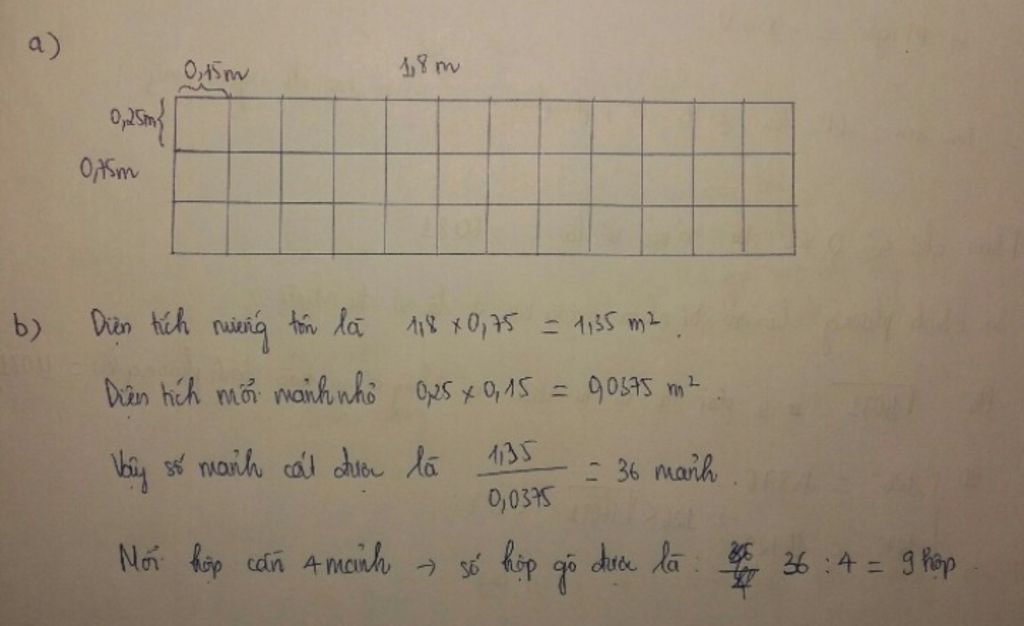 a)
0,15m 1,8 m
0,25m
0,75m
b) Diện tích miếng tôn là 1,8 × 0,75 = 1,35 m².
Diện tích mỗi mảnh nhỏ 0,25 × 0,15 = 0,0375 m².
Vậy số mảnh cắt được là 1,35 / 0,0375 = 36 mảnh.
Mỗi hộp cần 4 mảnh → số hộp gò được là: 36 : 4 = 9 hộp.